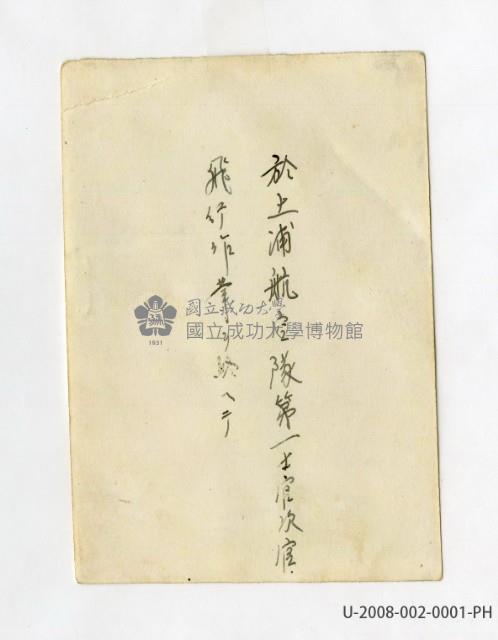 於土浦航空隊第一士官次官
飛行作業ヲ終ヘテ
國立成功大學
國立成功大學博物館
1931
U-2008-002-0001-PH